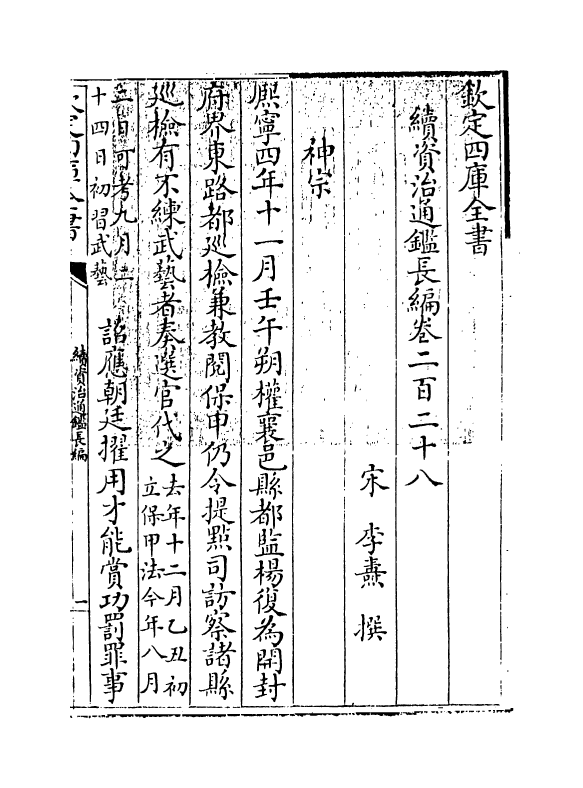 欽定四庫全書
續資治通鑑長編卷二百二十八
宋 李燾 撰
神宗
熈寧四年十一月壬午朔權襄邑縣都監楊復為開封
府界東路都巡檢兼教閱保甲仍令提㸃司訪察諸縣
巡檢有不練武藝者奏選官代之去年十二月乙丑初
立保甲法今年八月
日可考九月
十四日初習武藝
詔應朝廷擢用才能賞功罰罪事
續資治通鑑長編
一